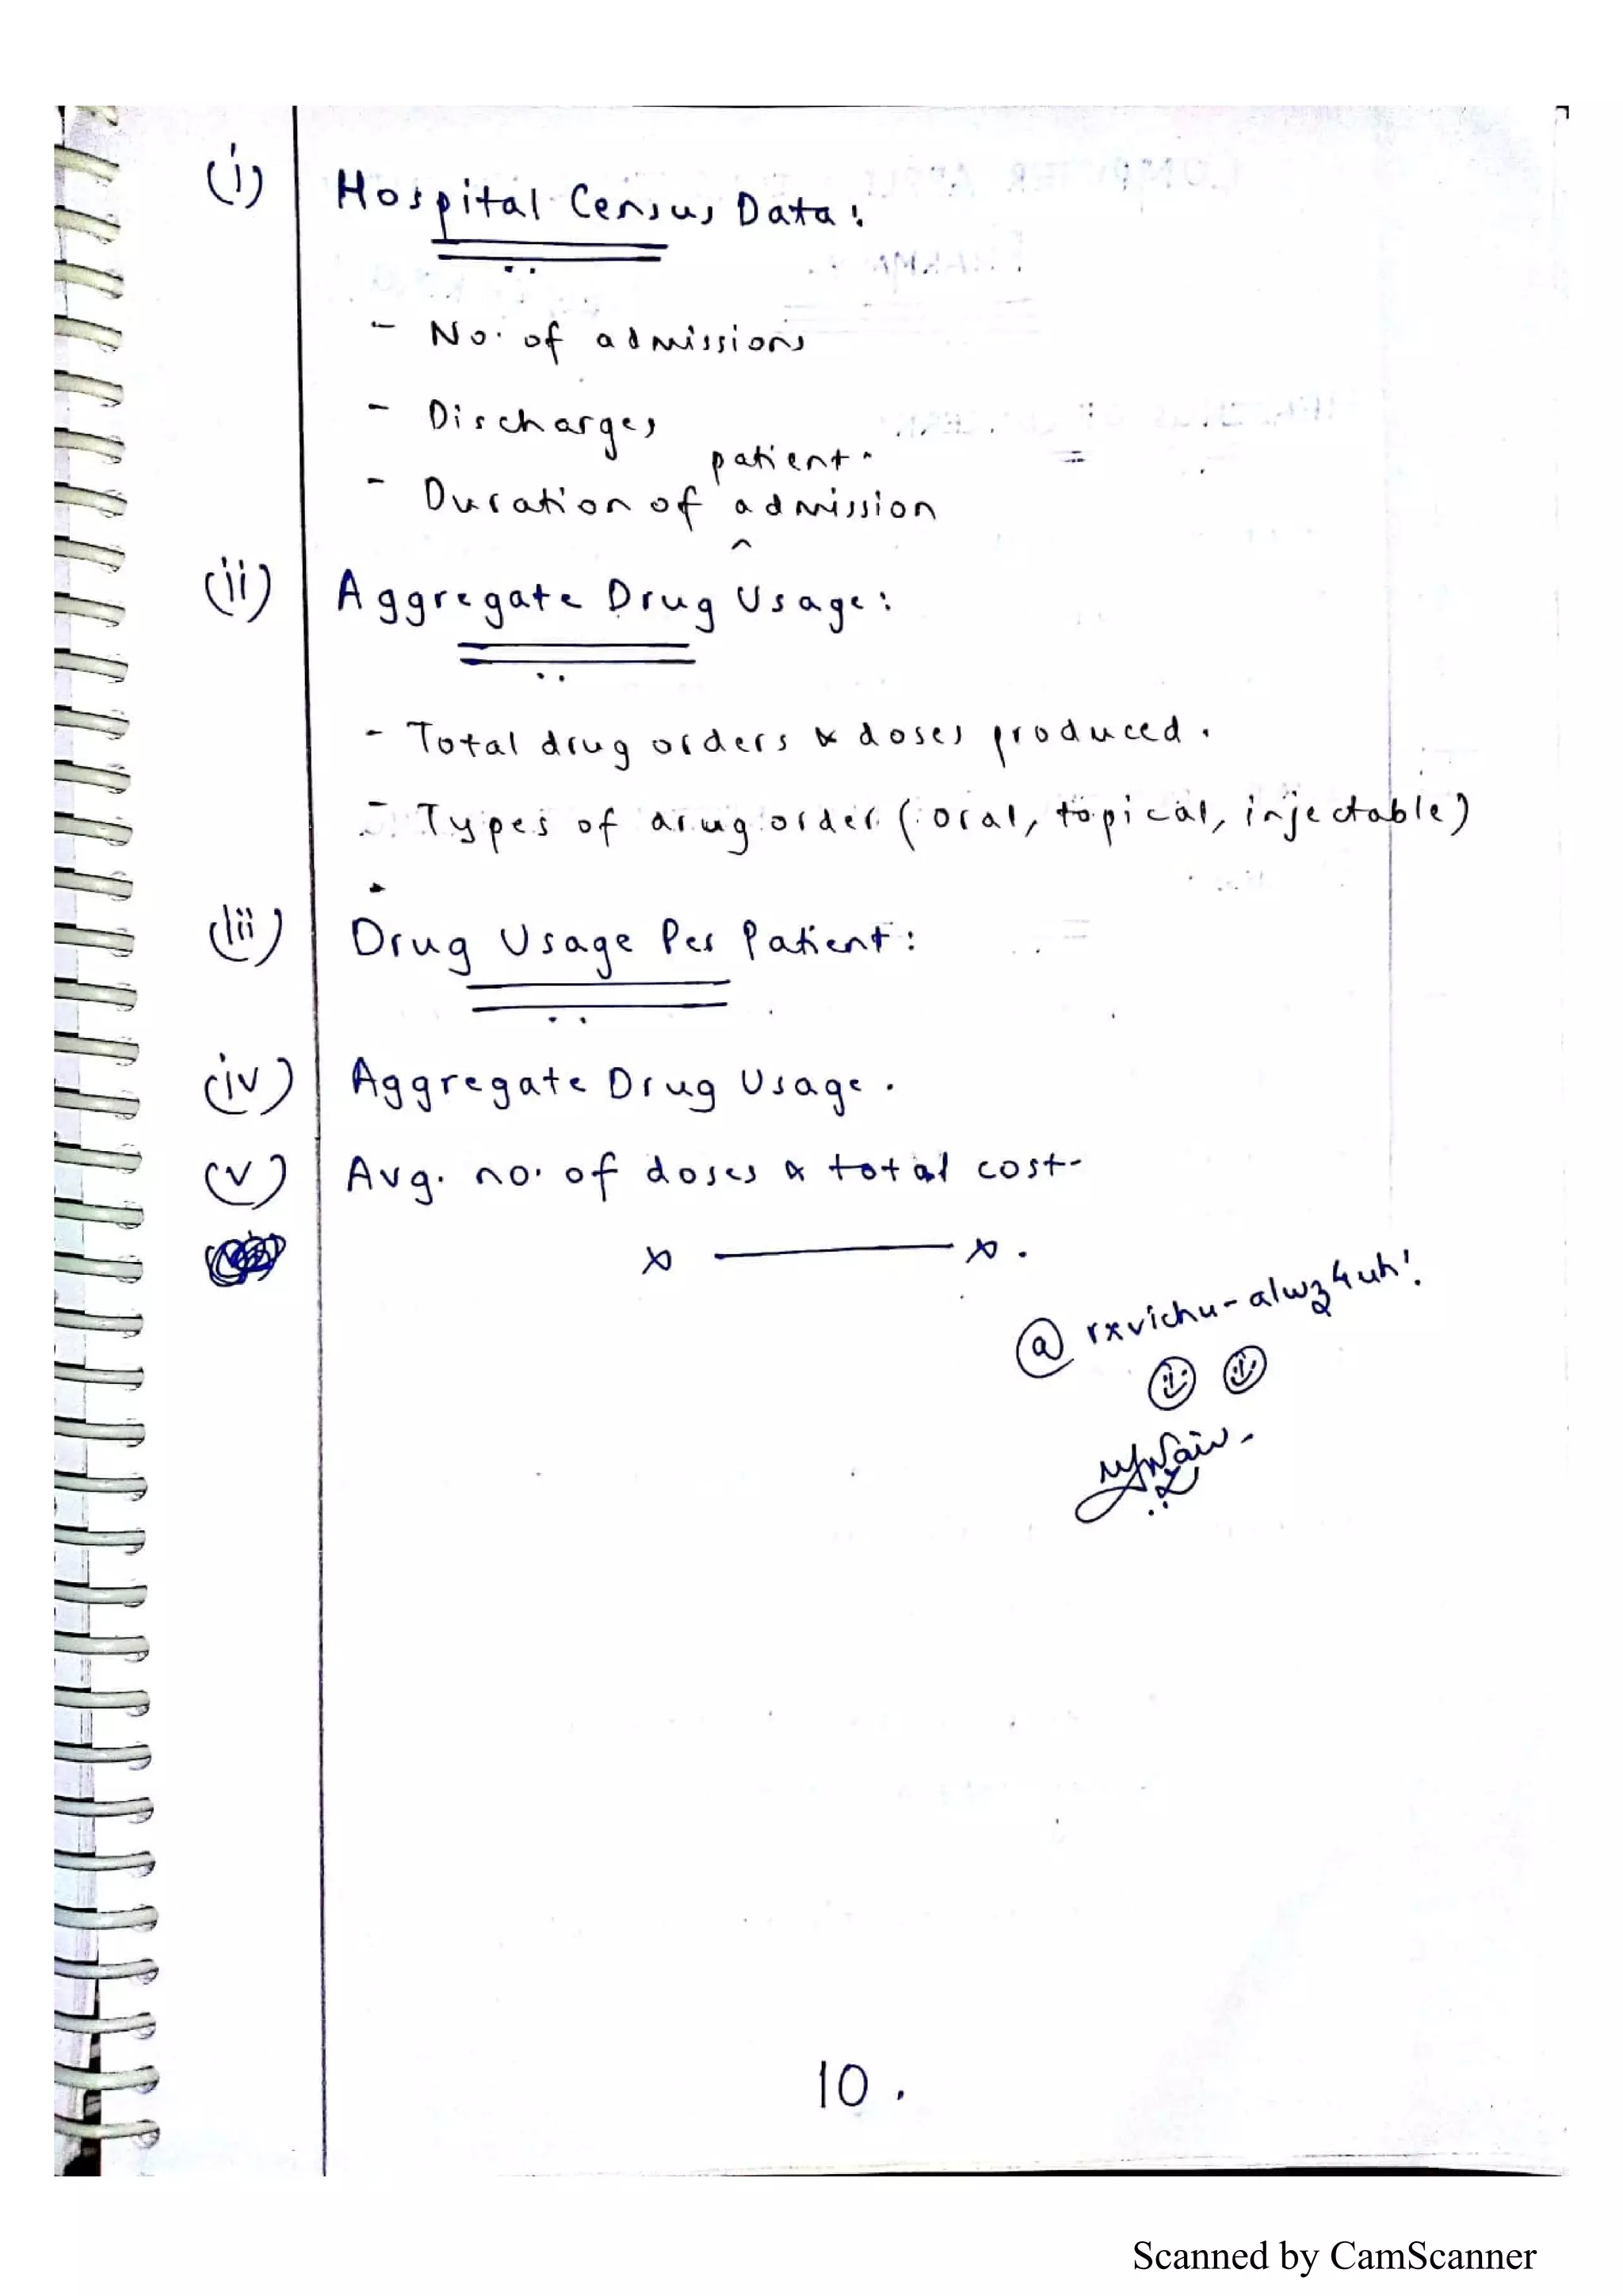 (i) Hospital Census Data:
- No. of admissions
- Discharges
patient
- Duration of admission
^
(ii) Aggregate Drug Usage:
- Total drug orders & doses produced.
- Types of drug order (oral, topical, injectable)
(iii) Drug Usage Per Patient:
(iv) Aggregate Drug Usage.
(v) Avg. no. of doses & total cost-
x ——— x.
@ rxvichu-alwz4uh!
10.
Scanned by CamScanner